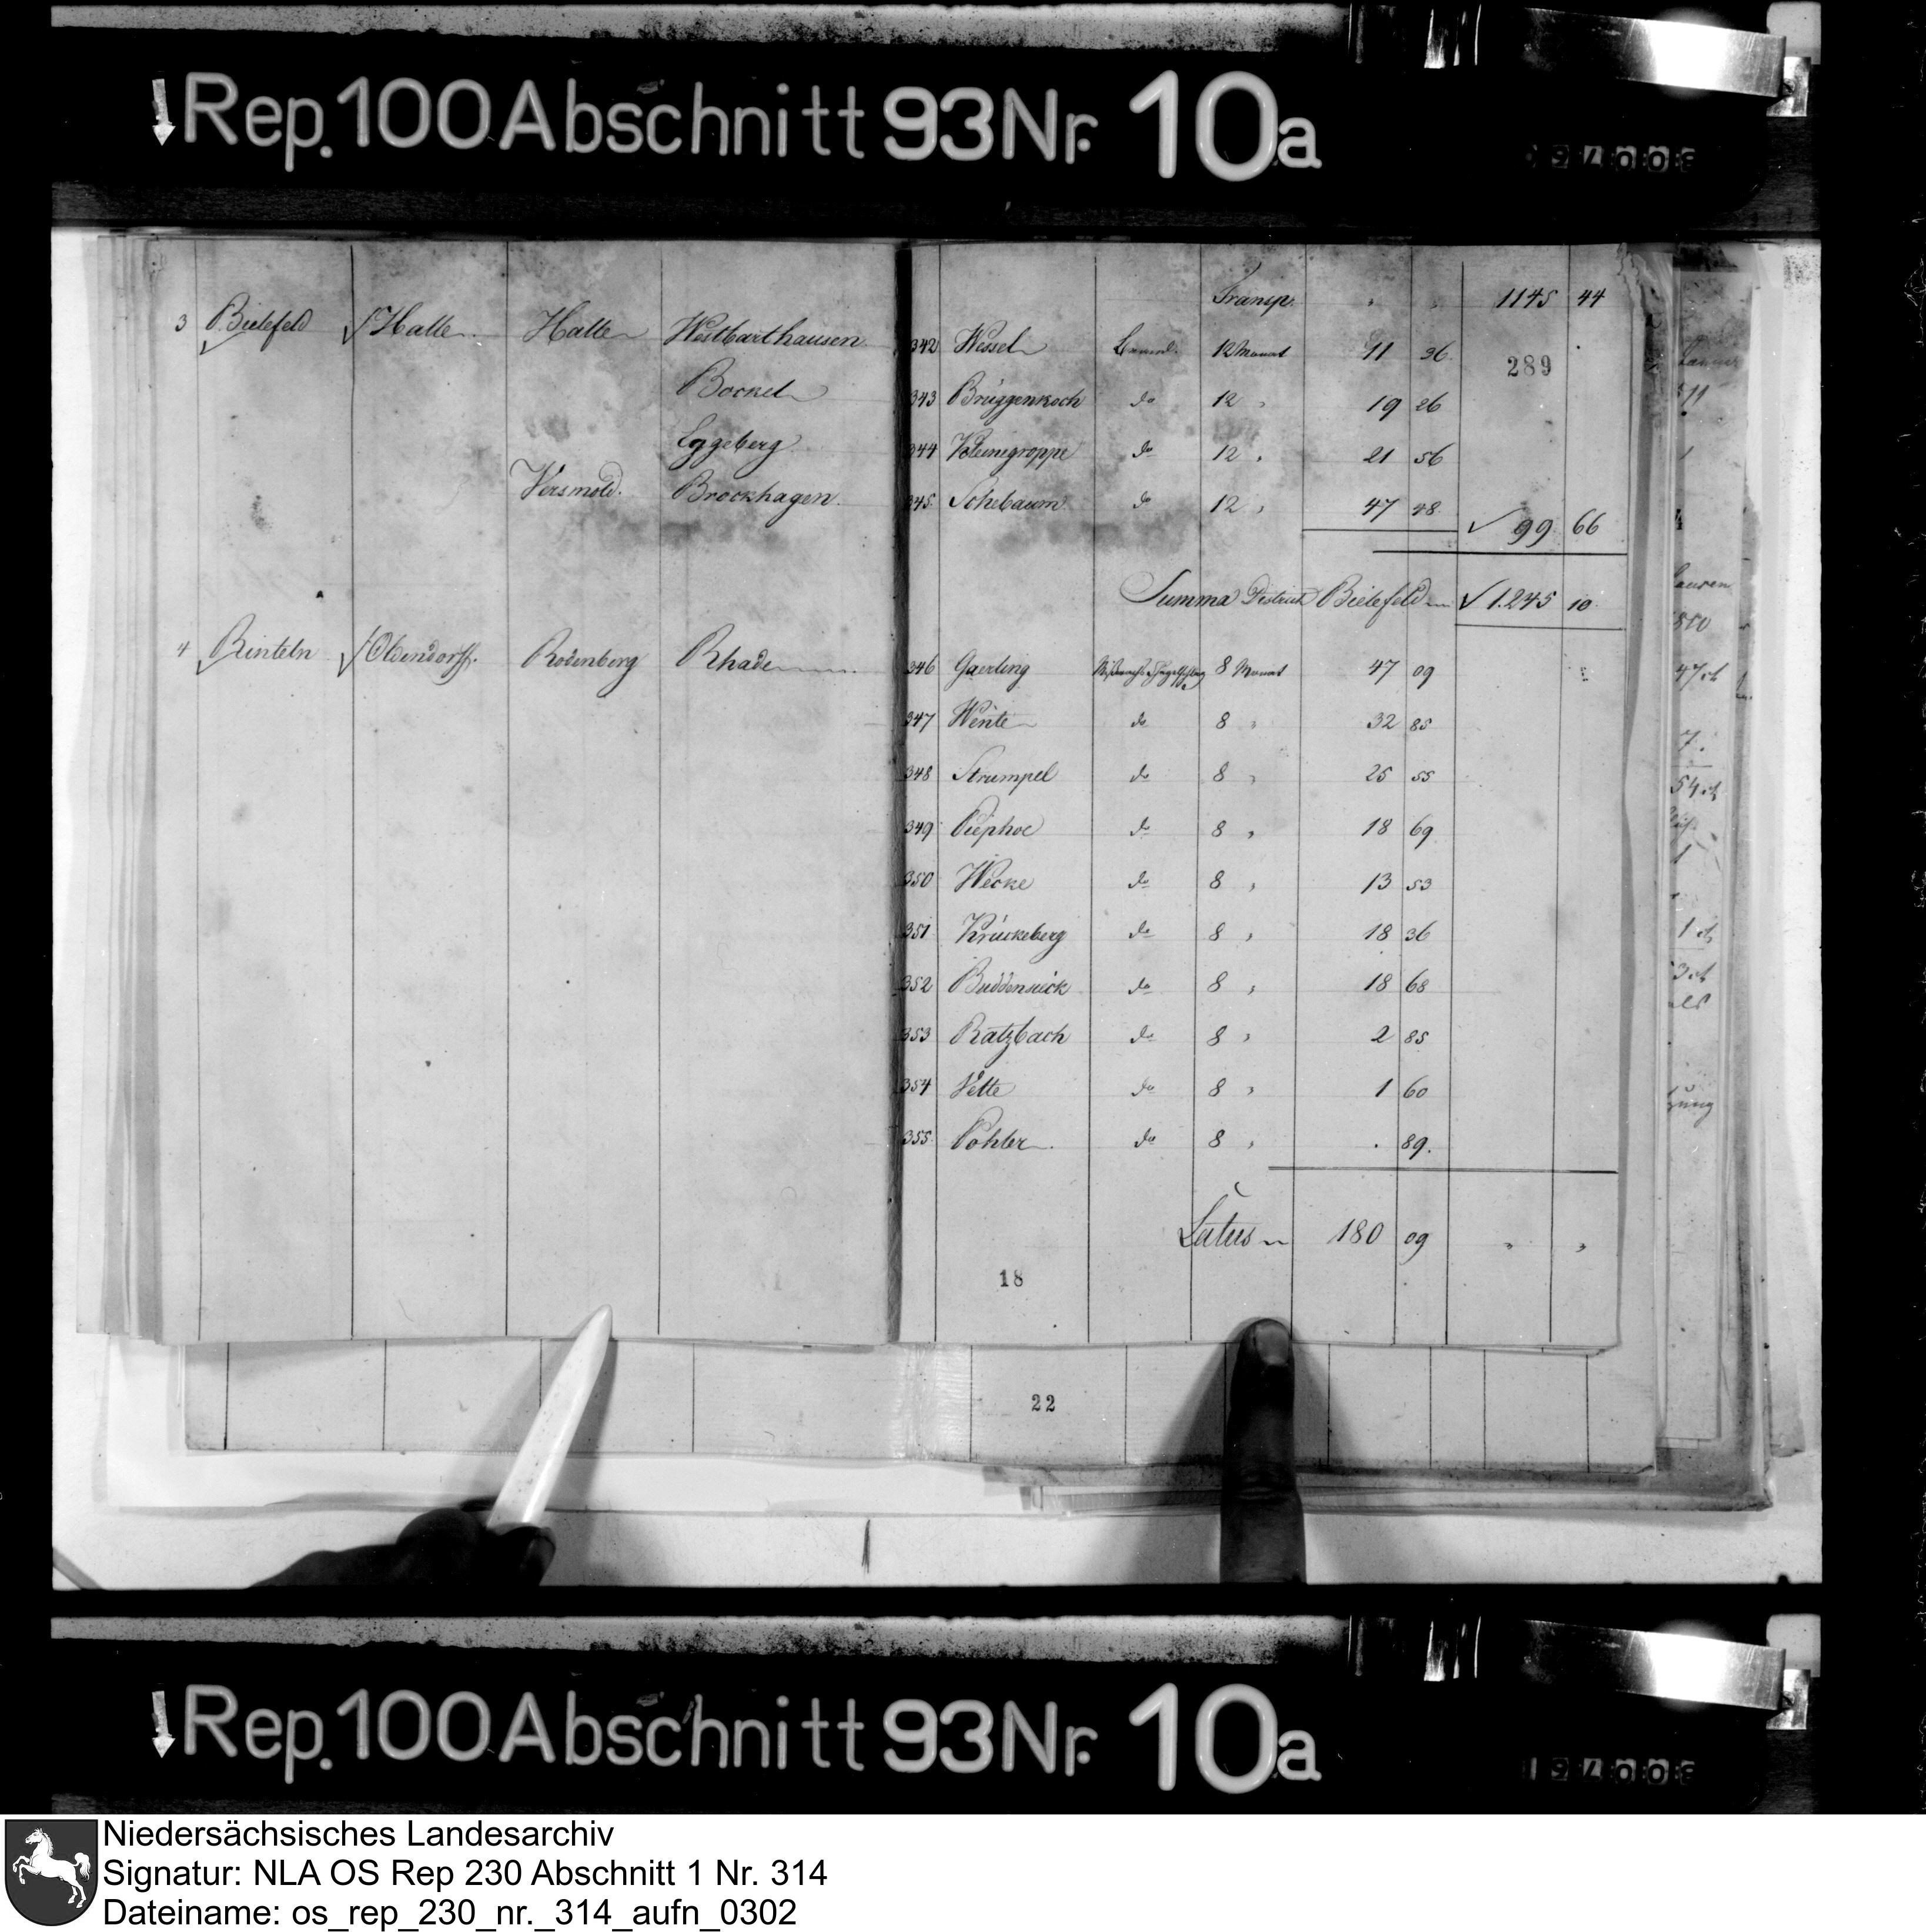 Rep. 100 Abschnitt 93 Nr. 10a
Transp. " " 1145 44
289
3 Bielefeld Halle Halle Westbarthausen 342 Wessel 12 Monat 11 36
Bockel 343 Brüggenkoch do 12 " 19 26
Eggeberg 344 Kleinegroppe do 12 " 21 56
Versmold. Brockhagen 345 Schebaum do 12 " 47 48
√ 99 66
Summa District Bielefeld √ 1.245 10
4 Rinteln Oldendorff. Rodenberg Rhade 346 Gaerling 8 Monat 47 09
347 Wente do 8 " 32 85
348 Strumpel do 8 " 25 55
349 Piephoe do 8 " 18 69
350 Wecke do 8 " 13 53
351 Krückeberg do 8 " 18 36
352 Buddensieck do 8 " 18 68
353 Ratzbach do 8 " 2 85
354 Vette do 8 " 1 60
355 Pohler do 8 " . 89.
Latus 180 09 " "
18
22
Rep. 100 Abschnitt 93 Nr. 10a
Niedersächsisches Landesarchiv
Signatur: NLA OS Rep 230 Abschnitt 1 Nr. 314
Dateiname: os_rep_230_nr._314_aufn_0302